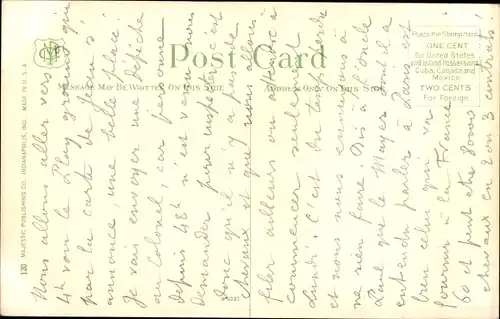 Post Card
MESSAGE MAY BE WRITTEN ON THIS SIDE
ADDRESS ONLY ON THIS SIDE
Place the Stamp here
ONE CENT
for United States
and Island Possessions
Cuba, Canada and
Mexico
TWO CENTS
For Foreign
120 MAJESTIC PUBLISHING CO. INDIANAPOLIS, IND. MADE IN U.S.A.
Nous allons aller vers
4h voir le Play ground qui
par la carte de Jean s'
annonce, une belle place.
Je vais envoyer une dépêche
au Colonel, car personne
depuis 48h n'est venu nous
demander pour inspecter, c'est
donc qu'il n'y a pas de
chevaux et que nous allons
filer ailleurs ou attendre à
commencer seulement
Lundi. C'est du temps perdu
et nous nous ennuyons à
ne rien faire. Dis à l'oncle
Paul que le Mayer dont il a
entendu parler à Paris est
bien celui qui va
fournir à la France
60 et peut être 80000
chevaux en 2 ou 3 contrats!